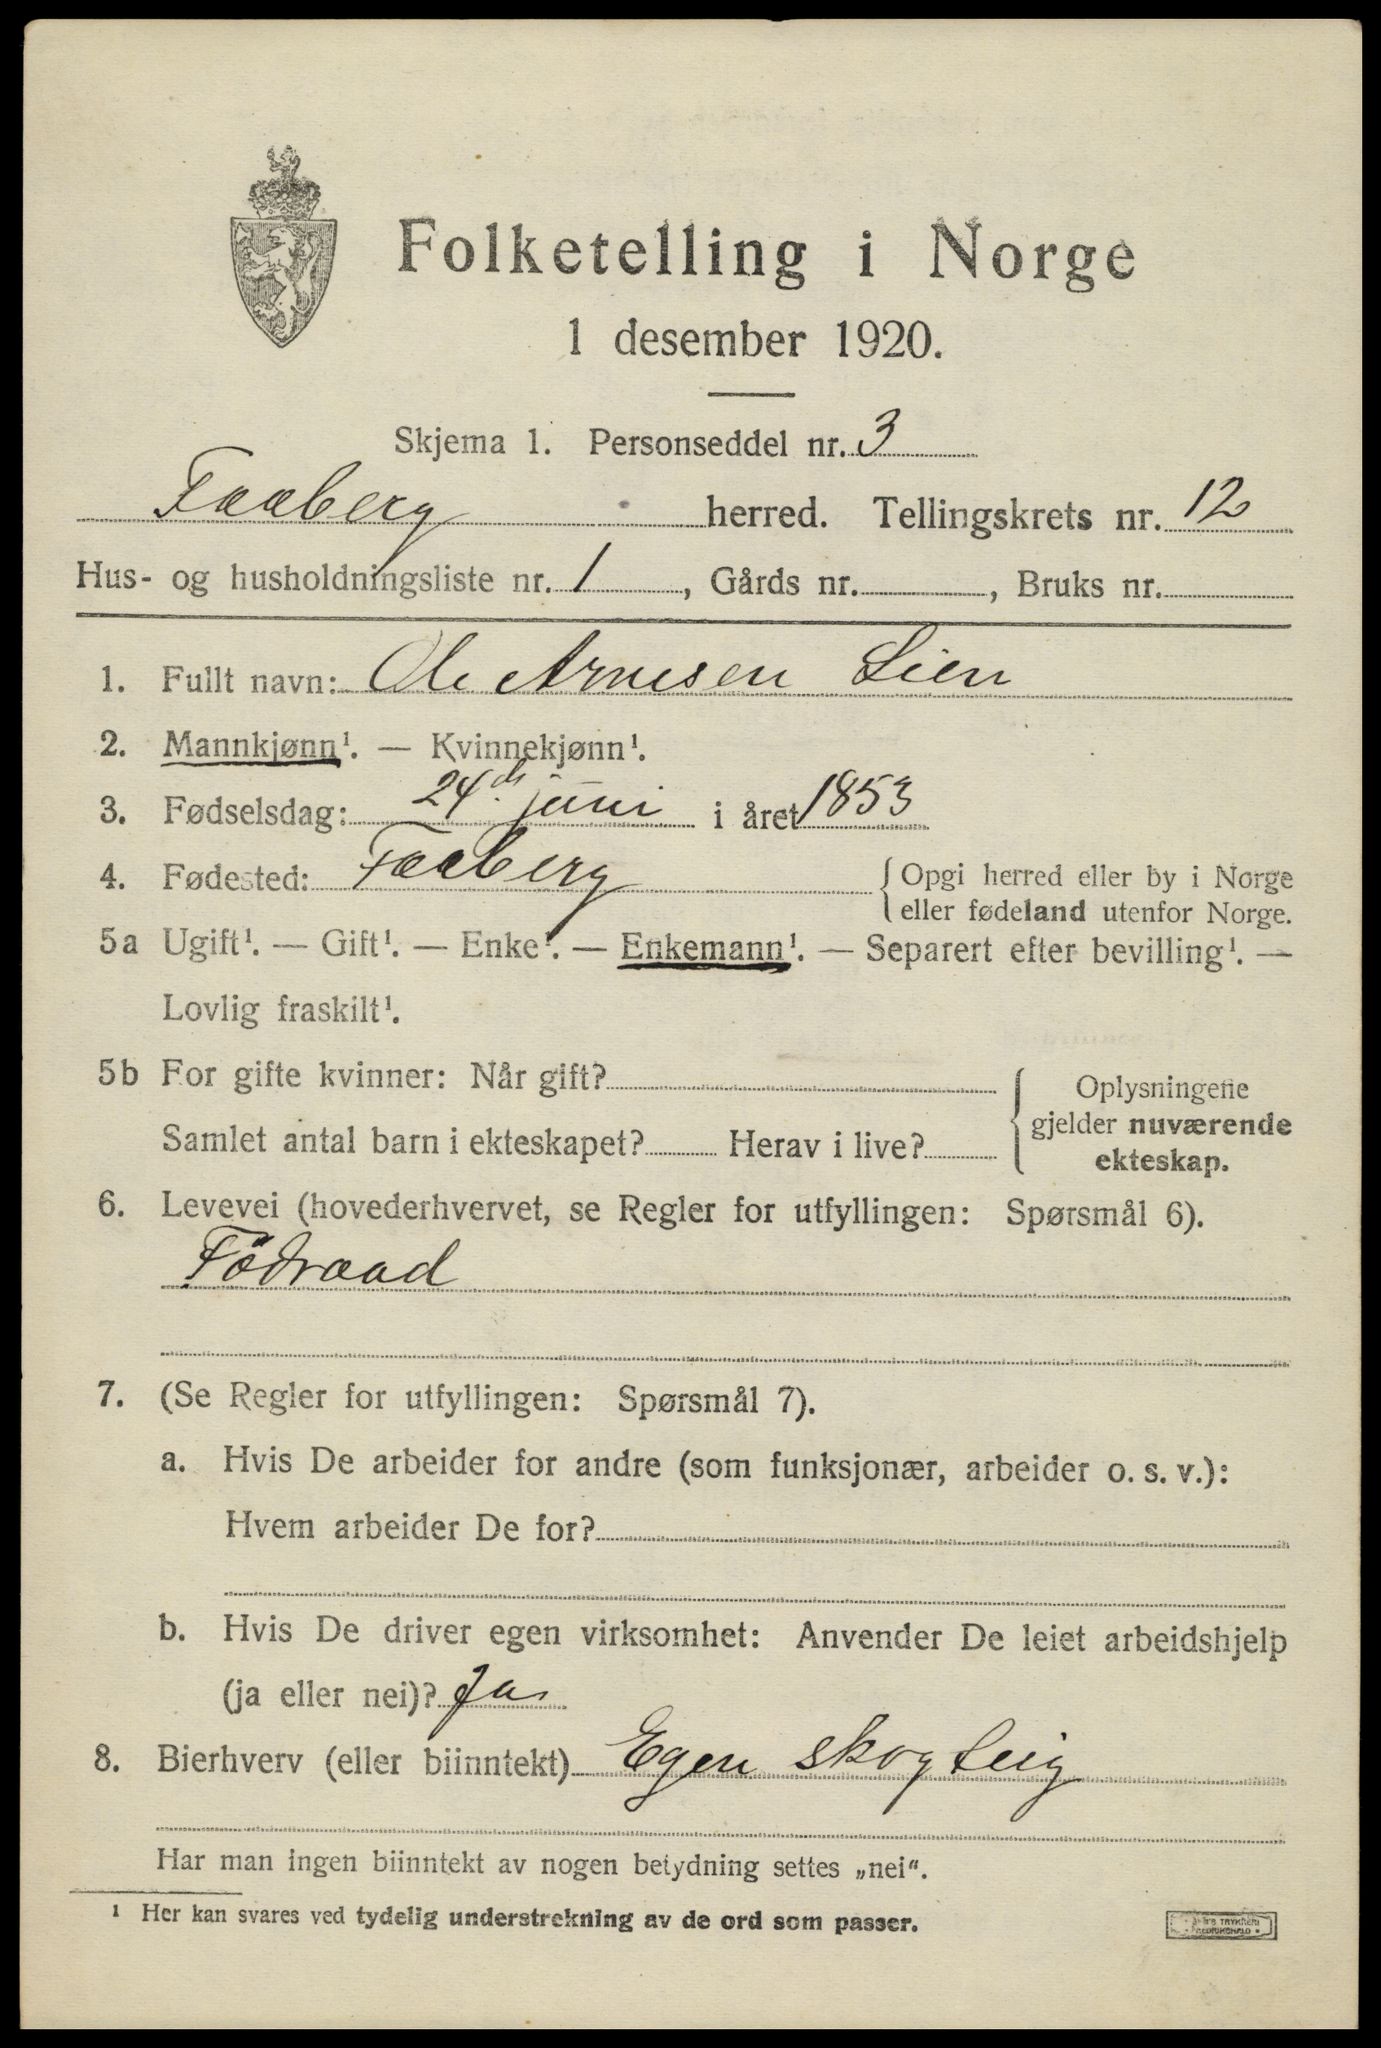 Folketelling i Norge
1 desember 1920.
Skjema 1. Personseddel nr. 3
Faaberg herred. Tellingskrets nr. 12
Hus- og husholdningsliste nr. 1, Gårds nr. , Bruks nr.
1. Fullt navn: Ole Arnesen Lien
2. Mannkjønn¹. — Kvinnekjønn¹.
3. Fødselsdag: 24de juni i året 1853
4. Fødested: Faaberg { Opgi herred eller by i Norge
eller fødeland utenfor Norge.
5a Ugift¹. — Gift¹. — Enke¹. — Enkemann¹. — Separert efter bevilling¹. —
Lovlig fraskilt¹.
5b For gifte kvinner: Når gift? { Oplysningene
gjelder nuværende
Samlet antal barn i ekteskapet? Herav i live?
ekteskap.
6. Levevei (hovederhvervet, se Regler for utfyllingen: Spørsmål 6).
Födraad
7. (Se Regler for utfyllingen: Spørsmål 7).
a. Hvis De arbeider for andre (som funksjonær, arbeider o. s. v.):
Hvem arbeider De for?
b. Hvis De driver egen virksomhet: Anvender De leiet arbeidshjelp
(ja eller nei)? Ja
8. Bierhverv (eller biinntekt) Egen skogteig
Har man ingen biinntekt av nogen betydning settes „nei“.
¹ Her kan svares ved tydelig understrekning av de ord som passer.